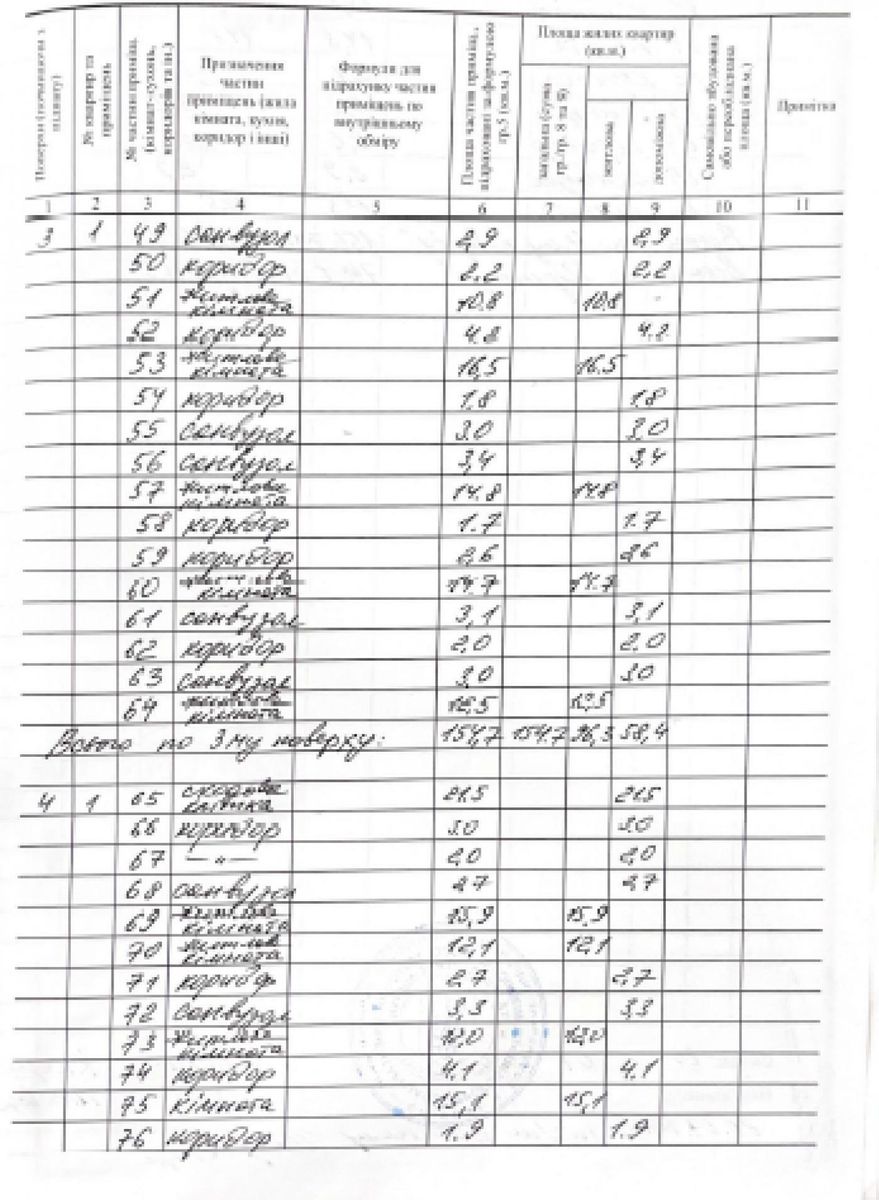 Поверхи (починаючи з підвалу) | № квартир та приміщень | № частин приміщ. (кімнат-кухонь, коридорів та ін.) | Призначення частин приміщень (жила кімната, кухня, коридор і інші) | Формули для підрахунку частин приміщень по внутрішньому обміру | Площа частин приміщ., підрахованої за формулою гр.5 (кв.м.) | Площа жилих квартир (кв.м.) | загальна (сума гр./гр. 8 та 9) | житлова | допоміжна | Самовільно збудована або переобладнана площа (кв.м.) | Примітка
1 2 3 4 5 6 7 8 9 10 11
3 1 49 санвузол 2,9 2,9
50 коридор 2.2 2,2
51 житлова кімната 10.8 10.8 -
52 коридор 4.8 4.8
53 житлова кімната 16,5 16.5
54 коридор 1.8 1.8
55 санвузол 3,0 3,0
56 санвузол 3,4 3,4
57 житлова кімната 14.8 14.8
58 коридор 1.7 1.7
59 коридор 2,6 2,6
60 житлова кімната 14.7 14.7
61 санвузол 3,1 3,1
62 коридор 2,0 2,0
63 санвузол 3,0 3,0
64 житлова кімната
Всього по 3му поверху: 154,7 154.7 96,3 58,4
4 1 65 сходова клітка 21.5 21.5
66 коридор 3.0 3.0
67 — „ — 2,0 2,0
68 санвузол 2.7 2.7
69 житлова кімната 15,9 15,9
70 житлова кімната 12,1 12,1
71 коридор 2,7 2,7
72 санвузол 3,3 3.3
73 житлова кімната 12,0 12,0
74 коридор 4.1 4.1
75 кімната 15,1 15,1
76 коридор 1.9 1.9